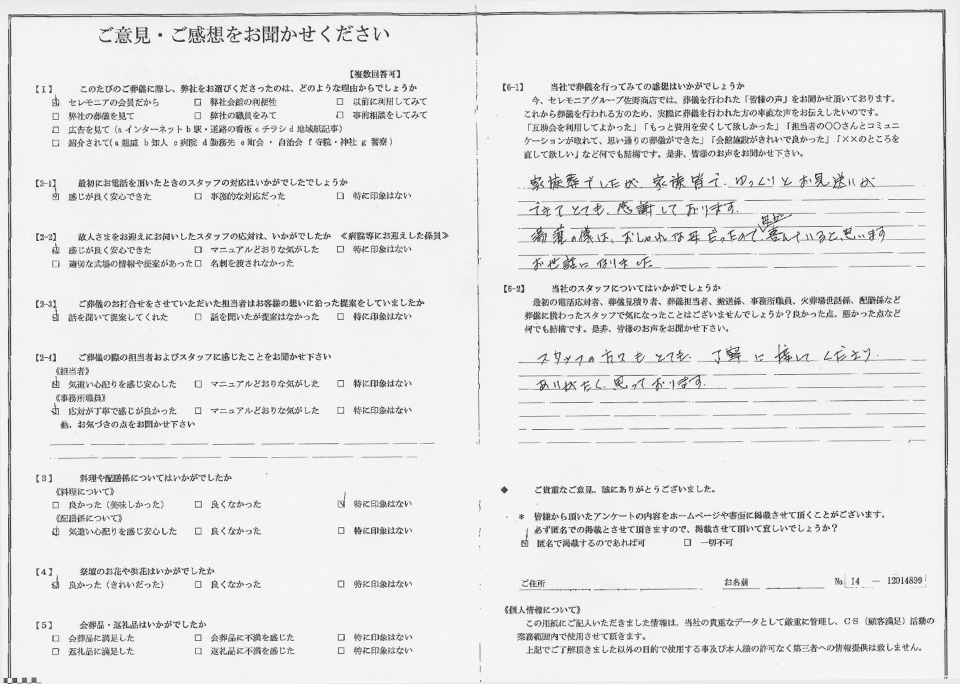 ご意見・ご感想をお聞かせください
【複数回答可】
【1】 このたびのご葬儀に際し、弊社をお選びくださったのは、どのような理由からでしょうか
☑ セレモニアの会員だから □ 弊社会館の利便性 □ 以前に利用してみて
□ 弊社の葬儀を見て □ 弊社の職員をみて □ 事前相談をしてみて
□ 広告を見て(a インターネット b 駅・道路の看板 c チラシ d 地域紙記事)
□ 紹介されて(a 親戚 b 知人 c 病院 d 勤務先 e 町会・自治会 f 寺院・神社 g 警察)
【2-1】 最初にお電話を頂いたときのスタッフの対応はいかがでしたでしょうか
☑ 感じが良く安心できた □ 事務的な対応だった □ 特に印象はない
【2-2】 故人さまをお迎えにお伺いしたスタッフの応対は、いかがでしたか 《病院等にお迎えした係員》
☑ 感じが良く安心できた □ マニュアルどおりな気がした □ 特に印象はない
□ 適切な式場の情報や提案があった □ 名刺を渡されなかった
【2-3】 ご葬儀のお打合せをさせていただいた担当者はお客様の想いに沿った提案をしていましたか
☑ 話を聞いて提案してくれた □ 話を聞いたが提案はなかった □ 特に印象はない
【2-4】 ご葬儀の際の担当者およびスタッフに感じたことをお聞かせ下さい
《担当者》
☑ 気遣い心配りを感じ安心した □ マニュアルどおりな気がした □ 特に印象はない
《事務所職員》
☑ 応対が丁寧で感じが良かった □ マニュアルどおりな気がした □ 特に印象はない
他、お気づきの点をお聞かせ下さい
【3】 料理や配膳係についてはいかがでしたか
《料理について》
□ 良かった(美味しかった) □ 良くなかった ☑ 特に印象はない
《配膳係について》
☑ 気遣い心配りを感じ安心した □ 良くなかった □ 特に印象はない
【4】 祭壇のお花や供花はいかがでしたか
☑ 良かった(きれいだった) □ 良くなかった □ 特に印象はない
【5】 会葬品・返礼品はいかがでしたか
□ 会葬品に満足した □ 会葬品に不満を感じた □ 特に印象はない
□ 返礼品に満足した □ 返礼品に不満を感じた □ 特に印象はない
【6-1】 当社で葬儀を行ってみての感想はいかがでしょうか
今、セレモニアグループ佐野商店では、葬儀を行われた「皆様の声」をお聞かせ頂いております。
これから葬儀を行われる方のため、実際に葬儀を行われた方の率直な声をお伝えしたいのです。
「互助会を利用してよかった」「もっと費用を安くして欲しかった」「担当者の〇〇さんとコミュニ
ケーションが取れて、思い通りの葬儀ができた」「会館施設がきれいで良かった」「××のところを
直して欲しい」など何でも結構です。是非、皆様のお声をお聞かせ下さい。
家族葬でしたが、家族皆で、ゆっくりとお見送りが
できてとても、感謝しております。
湯灌の儀は、おしゃれな母だったので、母が喜んでいると、思います
お世話になりました
【6-2】 当社のスタッフについてはいかがでしょうか
最初の電話応対者、葬儀見積り者、葬儀担当者、搬送係、事務所職員、火葬場世話係、配膳係など
葬儀に携わったスタッフで気になったことはございませんでしょうか?良かった点、悪かった点など
何でも結構です。是非、皆様のお声をお聞かせ下さい。
スタッフの方々もとても、丁寧に接してくださり、
ありがたく、思っております。
◆ ご貴重なご意見、誠にありがとうございました。
* 皆様から頂いたアンケートの内容をホームページや書面に掲載させて頂くことがございます。
必ず匿名での掲載とさせて頂きますので、掲載させて頂いて宜しいでしょうか?
☑ 匿名で掲載するのであれば可 □ 一切不可
ご住所 お名前 № 14 － 12014899
《個人情報について》
この用紙にご記入いただきました情報は、当社の貴重なデータとして厳重に管理し、CS(顧客満足)活動の
業務範囲内で使用させて頂きます。
上記でご了解頂きました以外の目的で使用する事及び本人様の許可なく第三者への情報提供は致しません。